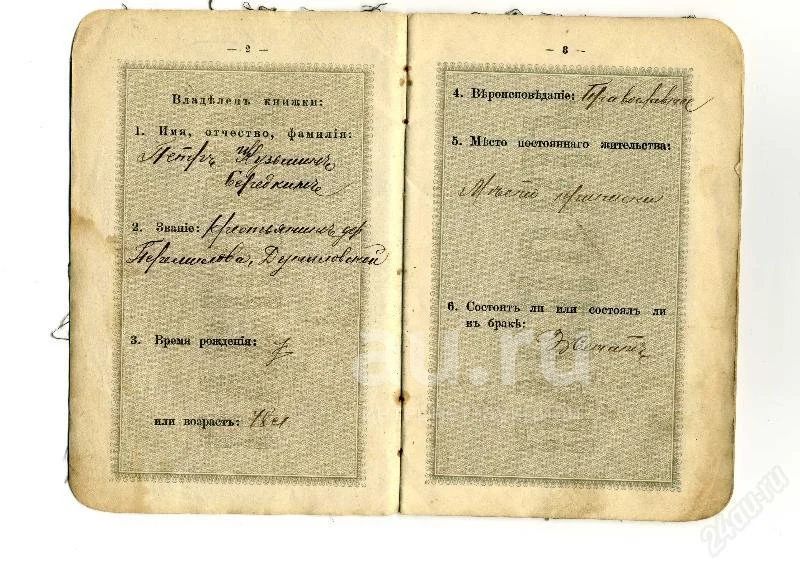 — 2 —
Владѣлецъ книжки:
1. Имя, отчество, фамилія:
Петръ Кузьминъ
Бередкинъ
2. Званіе: крестьянинъ дер
Перемилова, Дуниловской
3. Время рожденія:
или возрастъ:
— 3 —
4. Вѣроисповѣданіе: Православное
5. Мѣсто постояннаго жительства:
Мѣсто приписки
6. Состоитъ ли или состоялъ ли
въ бракѣ:
Женатъ
au.ru
24au.ru